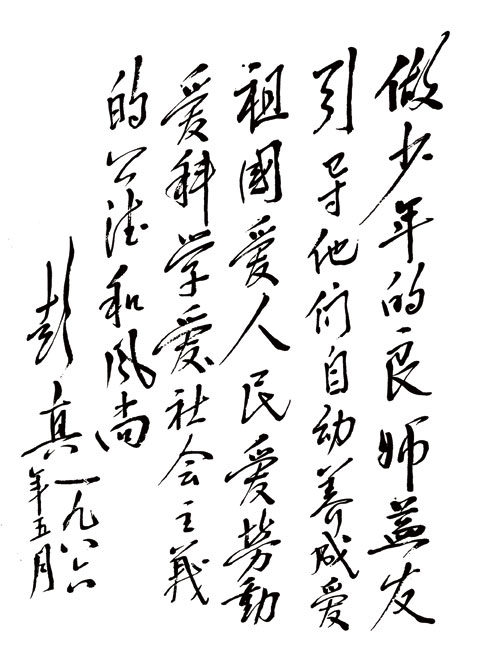 做少年的良师益友
引导他们自动养成爱
祖國爱人民爱劳動
爱科学爱社会主義
的公德和风尚
彭真一九八六
年五月